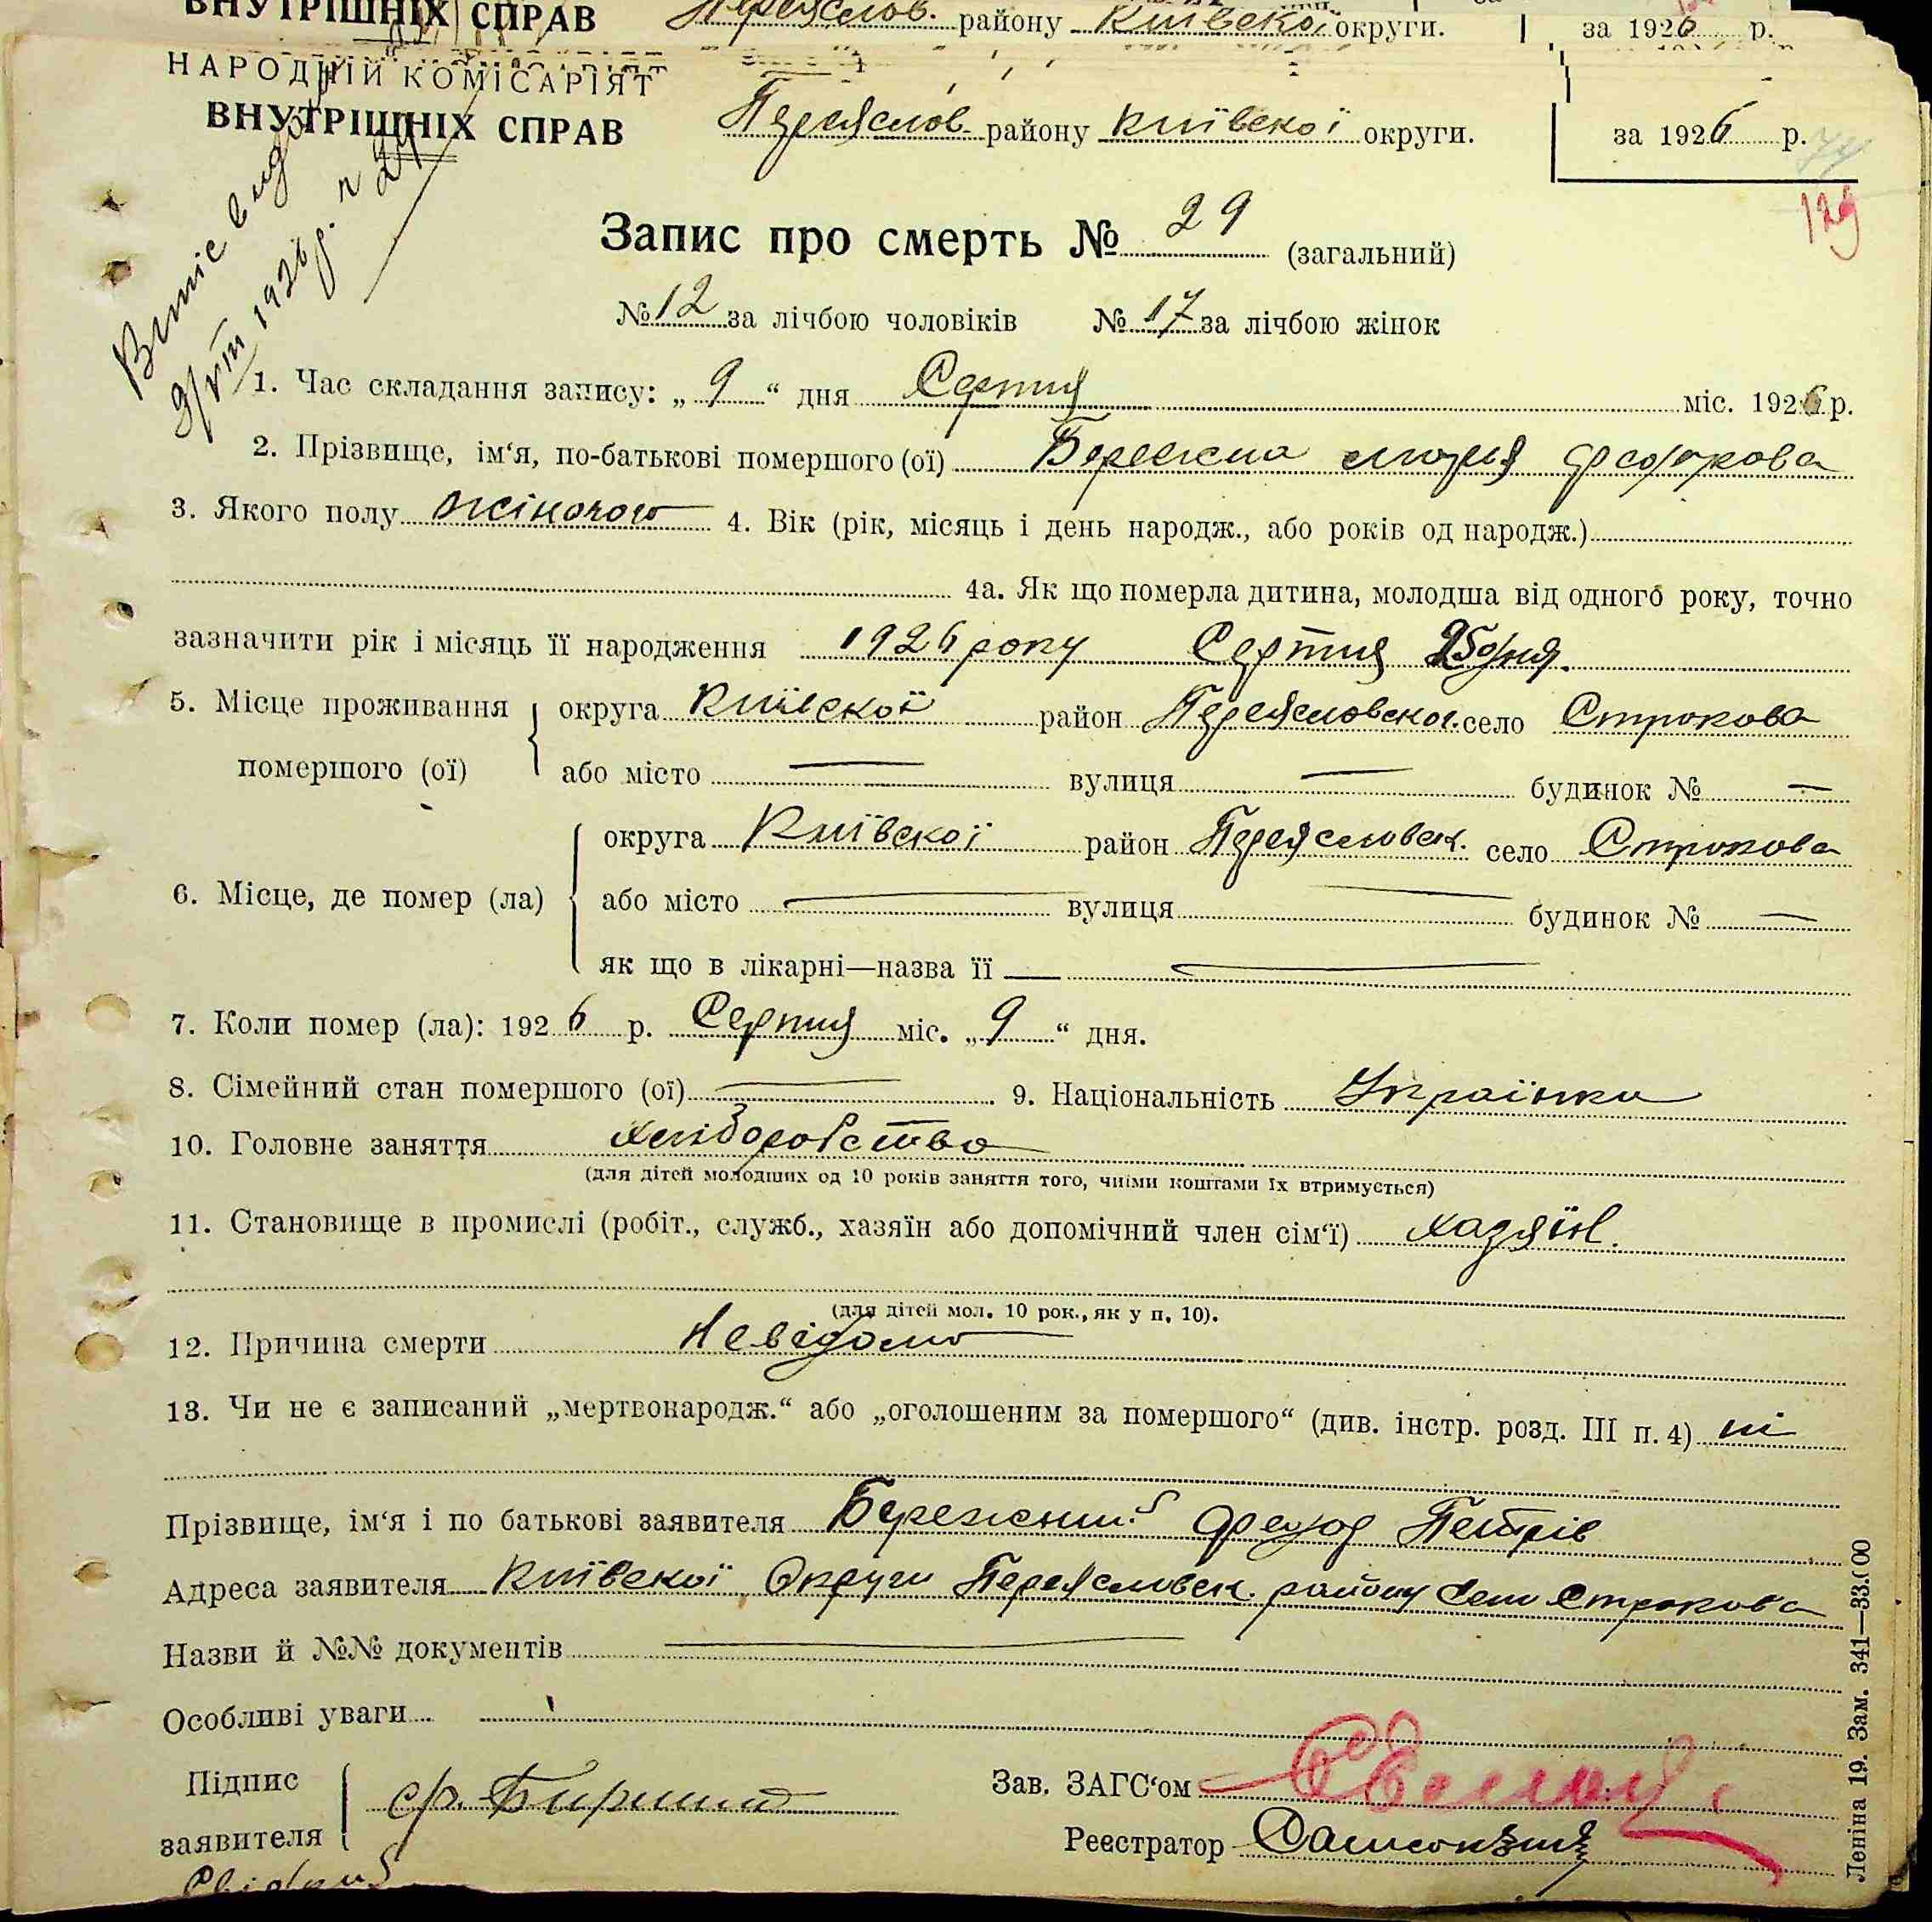 ВНУТРІШНІХ СПРАВ Переяслов. району Київскої округи. за 1926 р.
НАРОДНІЙ КОМІСАРІЯТ
ВНУТРІШНІХ СПРАВ Переяслов. району Київскої округи. за 1926 р.
129
9/VIII 1926 р.
Запис про смерть № 29 (загальний)
№ 12 за лічбою чоловіків № 17 за лічбою жінок
1. Час складання запису: „ 9 “ дня Серпня міс. 1926 р.
2. Прізвище, ім‘я, по-батькові помершого (ої) Бережна Федорова
3. Якого полу жіночого 4. Вік (рік, місяць і день народж., або років од народж.)
4а. Як що померла дитина, молодша від одного року, точно
зазначити рік і місяць її народження 1926 року Серпня дня.
5. Місце проживання помершого (ої) округа Київскої район Переясловског. село Строкова
або місто — вулиця — будинок № —
6. Місце, де помер (ла) округа Київскої район Переясловск. село Строкова
або місто — вулиця — будинок № —
як що в лікарні—назва її —
7. Коли помер (ла): 1926 р. Серпня міс. „ 9 “ дня.
8. Сімейний стан помершого (ої) — 9. Національність Українка
10. Головне заняття хліборобство
(для дітей молодших од 10 років заняття того, чиїми коштами їх втримується)
11. Становище в промислі (робіт., служб., хазяїн або допомічний член сім‘ї) хазяїн.
(для дітей мол. 10 рок., як у п. 10).
12. Причина смерти Невідомо
13. Чи не є записаний „мертвонародж.“ або „оголошеним за помершого“ (див. інстр. розд. III п. 4) ні
Прізвище, ім‘я і по батькові заявителя Бережний Федор Петрів
Адреса заявителя Київскої Округи Переясловск. району Село Строкова
Назви й №№ документів —
Особливі уваги
Підпис заявителя ф.
Зав. ЗАГС‘ом
Реєстратор
Леніна 19. Зам. 341—33.000